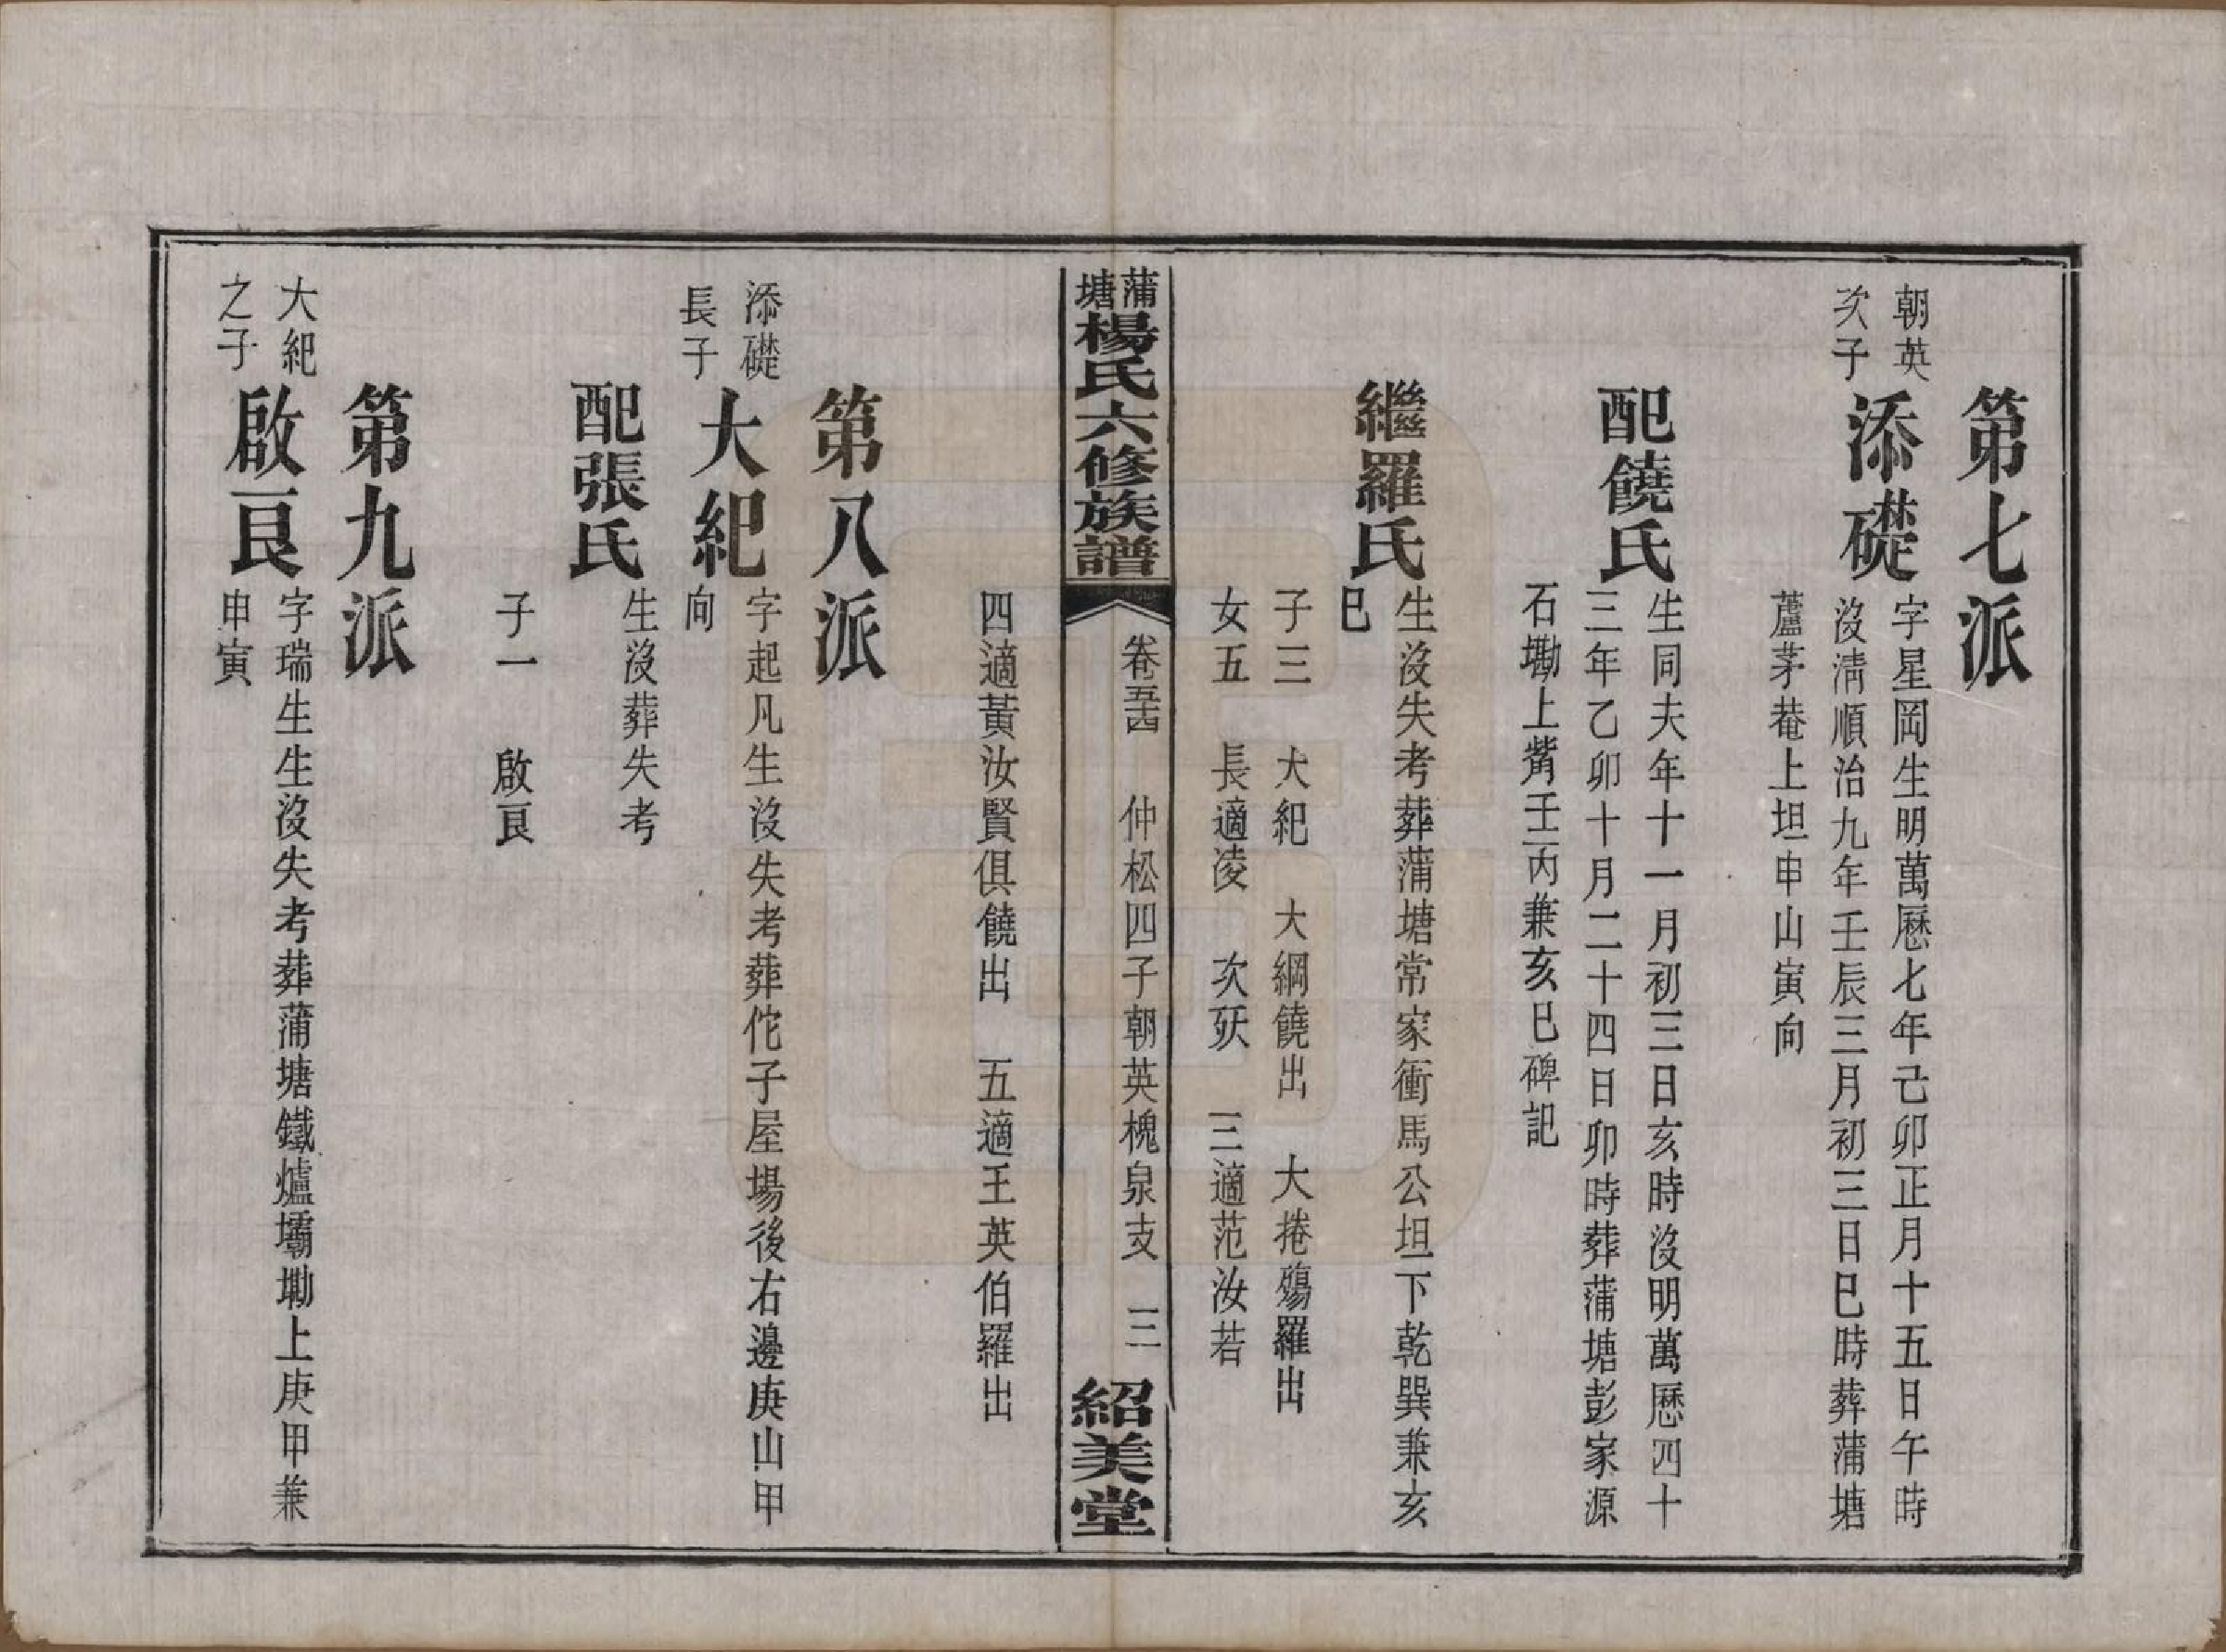 第七派
朝英
次子
添礎
字星岡生明萬歷七年己卯正月十五日午時
沒清順治九年壬辰三月初三日巳時葬蒲塘
蘆茅菴上坦申山寅向
配饒氏
生同夫年十一月初三日亥時沒明萬歷四十
三年乙卯十月二十四日卯時葬蒲塘彭家源
石墈上觜壬丙兼亥巳碑記
繼羅氏
生沒失考葬蒲塘常家衝馬公坦下乾巽兼亥
巳
子三　大紀　大綱饒出　大捲殤羅出
女五　長適凌　次殀　三適范汝若
蒲塘楊氏六修族譜
卷五十四　仲松四子朝英槐泉支　三
紹美堂
四適黃汝賢俱饒出　五適王英伯羅出
第八派
添礎
長子
大紀
字起凡生沒失考葬佗子屋場後右邊庚山甲
向
配張氏
生沒葬失考
子一　啟良
第九派
大紀
之子
啟良
字瑞生生沒失考葬蒲塘鐵爐壩墈上庚甲兼
申寅